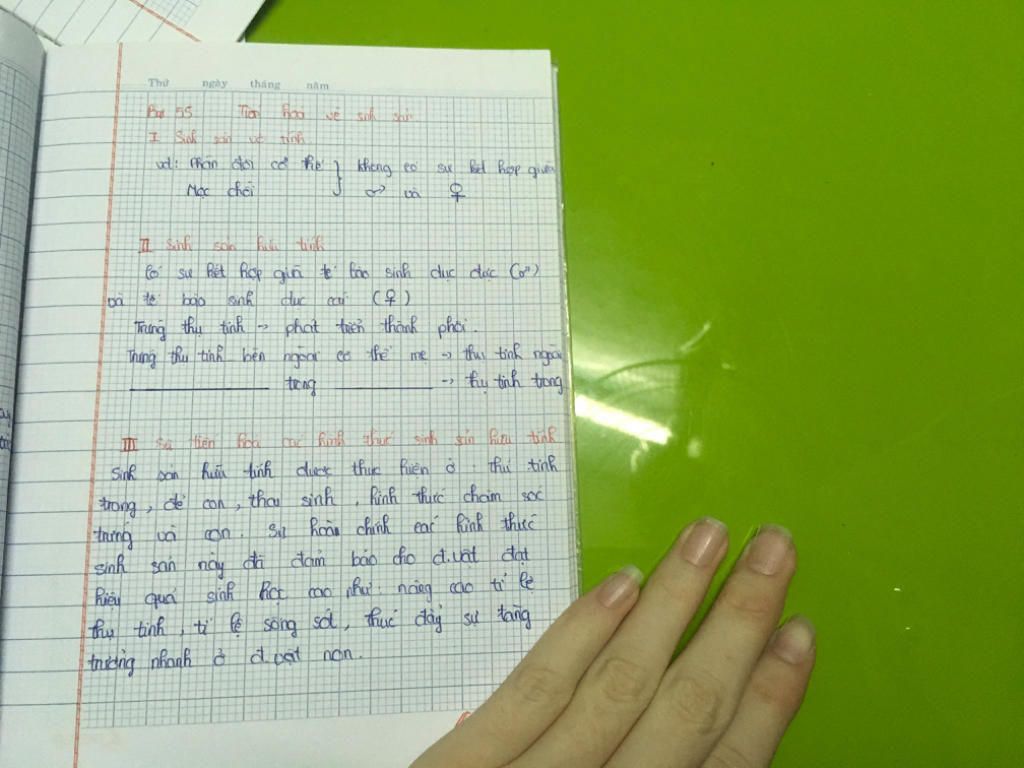 Thứ ngày tháng năm
Bài 55 Tiến hóa về sinh sản
I Sinh sản vô tính
vd: Phân đôi cơ thể } không có sự kết hợp giữa
Mọc chồi } ♂ và ♀
II Sinh sản hữu tính
Có sự kết hợp giữa tế bào sinh dục đực (♂)
và tế bào sinh dục cái (♀)
Trứng thụ tinh → phát triển thành phôi.
Trứng thụ tinh bên ngoài cơ thể mẹ → thụ tinh ngoài
trong → thụ tinh trong
III Sự tiến hóa các hình thức sinh sản hữu tính
Sinh sản hữu tính được thực hiện ở: thụ tinh
trong, đẻ con, thai sinh, hình thức chăm sóc
trứng và con. Sự hoàn chỉnh các hình thức
sinh sản này đã đảm bảo cho đ.vật đạt
hiệu quả sinh học cao như: nâng cao tỉ lệ
thụ tinh, tỉ lệ sống sót, thúc đẩy sự tăng
trưởng nhanh ở đ.vật non.